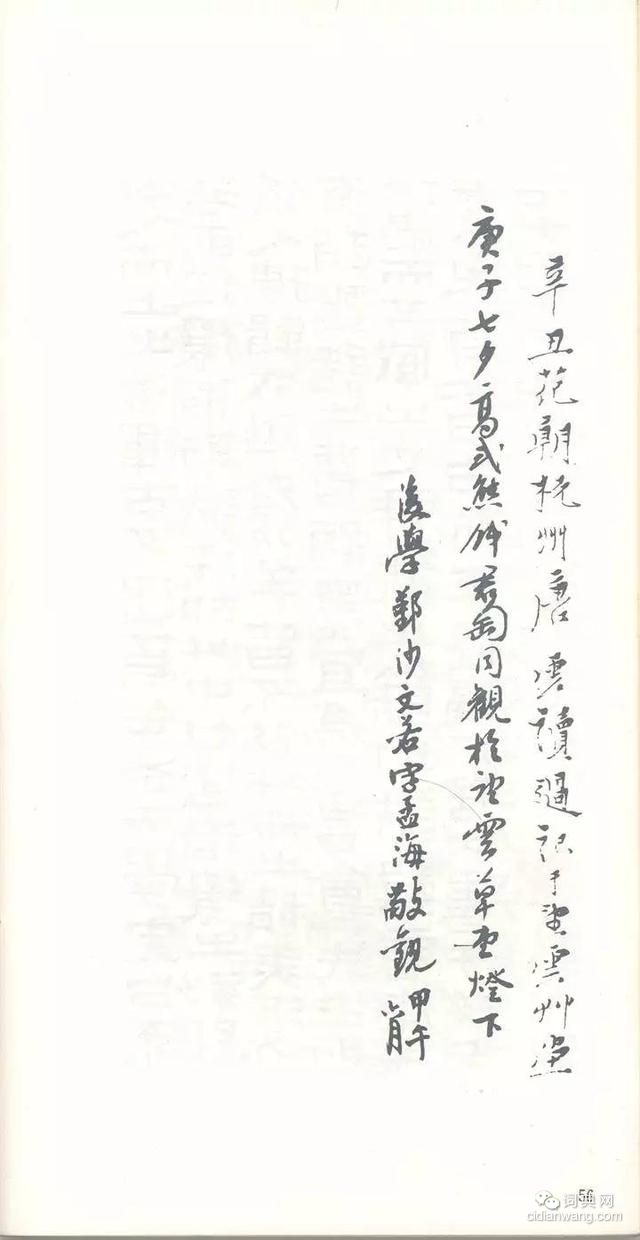 辛丑花朝杭州唐雲讀過記于望雲艸堂
庚子七夕高式熊錢君匋同觀於望雲草堂燈下
後學鄞沙文若字孟海敬觀
甲午
肖
56
词典网
cidianwang.com